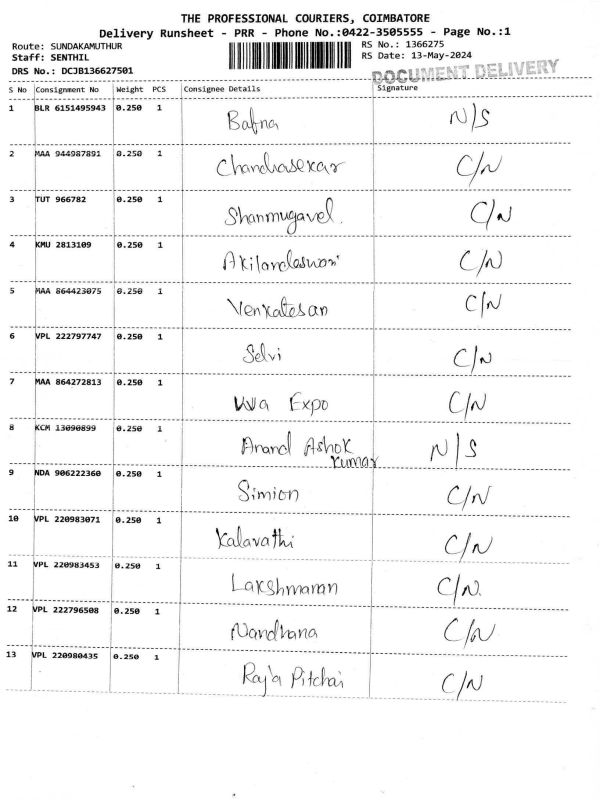 THE PROFESSIONAL COURIERS, COIMBATORE
Delivery Runsheet - PRR - Phone No.:0422-3505555 - Page No.:1
Route: SUNDAKAMUTHUR
RS No.: 1366275
Staff: SENTHIL
RS Date: 13-May-2024
DRS No.: DCJB136627501
DOCUMENT DELIVERY
S No Consignment No Weight PCS Consignee Details Signature
1 BLR 6151495943 0.250 1 Bafna N/S
2 MAA 944987891 0.250 1 Chandrasekar C/N
3 TUT 966782 0.250 1 Shanmugavel. C/N
4 KMU 2813109 0.250 1 Akilandeswari C/N
5 MAA 864423075 0.250 1 Venkatesan C/N
6 VPL 222797747 0.250 1 Selvi C/N
7 MAA 864272813 0.250 1 Expo C/N
8 KCM 13090899 0.250 1 Anand Ashok N/S
Kumar
9 NDA 906222360 0.250 1 Simion C/N
10 VPL 220983071 0.250 1 Kalavathi C/N
11 VPL 220983453 0.250 1 Lakshmanan C/N.
12 VPL 222796508 0.250 1 Nandhana C/N
13 VPL 220980435 0.250 1 Raja Pitchai C/N